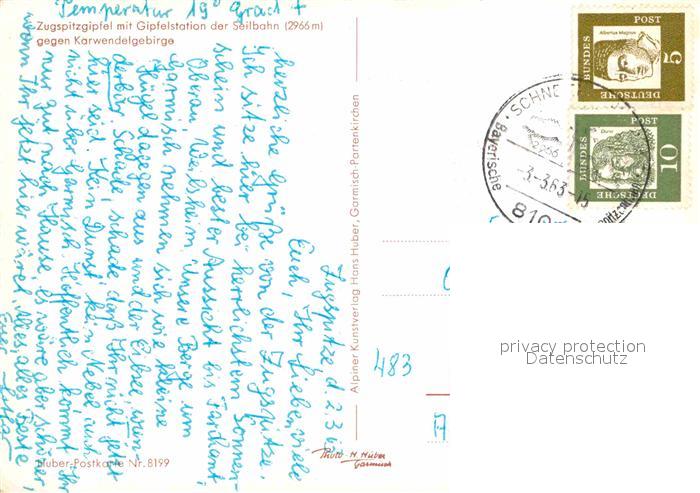 Temperatur 19° Grad +
Zugspitzgipfel mit Gipfelstation der Seilbahn (2966 m)
gegen Karwendelgebirge
Zugspitze d. 2.3.63
Euch, Ihr Lieben, viele
herzliche Grüße von der Zugspitze,
Ich sitze hier bei herrlichstem Sonnen-
schein und bester Aussicht bis
Oberau, Weilsheim. Unsere Berge um
Garmisch nehmen sich wie kleine
Hügel dagegen aus und der Eibsee wun-
derbar. Schade, schade, daß Ihr nicht jetzt
hier seid. Kein Dunst, kein Nebel auch
nicht über Garmisch. Hoffentlich kommt Ihr
nur gut nach Hause, es wäre aber schöner,
wenn Ihr jetzt hier wäret. Alles alles Gute
Eure
Huber-Postkarte Nr. 8199
Alpiner Kunstverlag Hans Huber, Garmisch-Partenkirchen
Photo-H. Huber
Garmisch
483
Albertus Magnus
DEUTSCHE
BUNDES
POST
5
Dürer
DEUTSCHE
BUNDES
POST
10
Bayerische
2966
-3.-3.63-15
810
privacy protection
Datenschutz